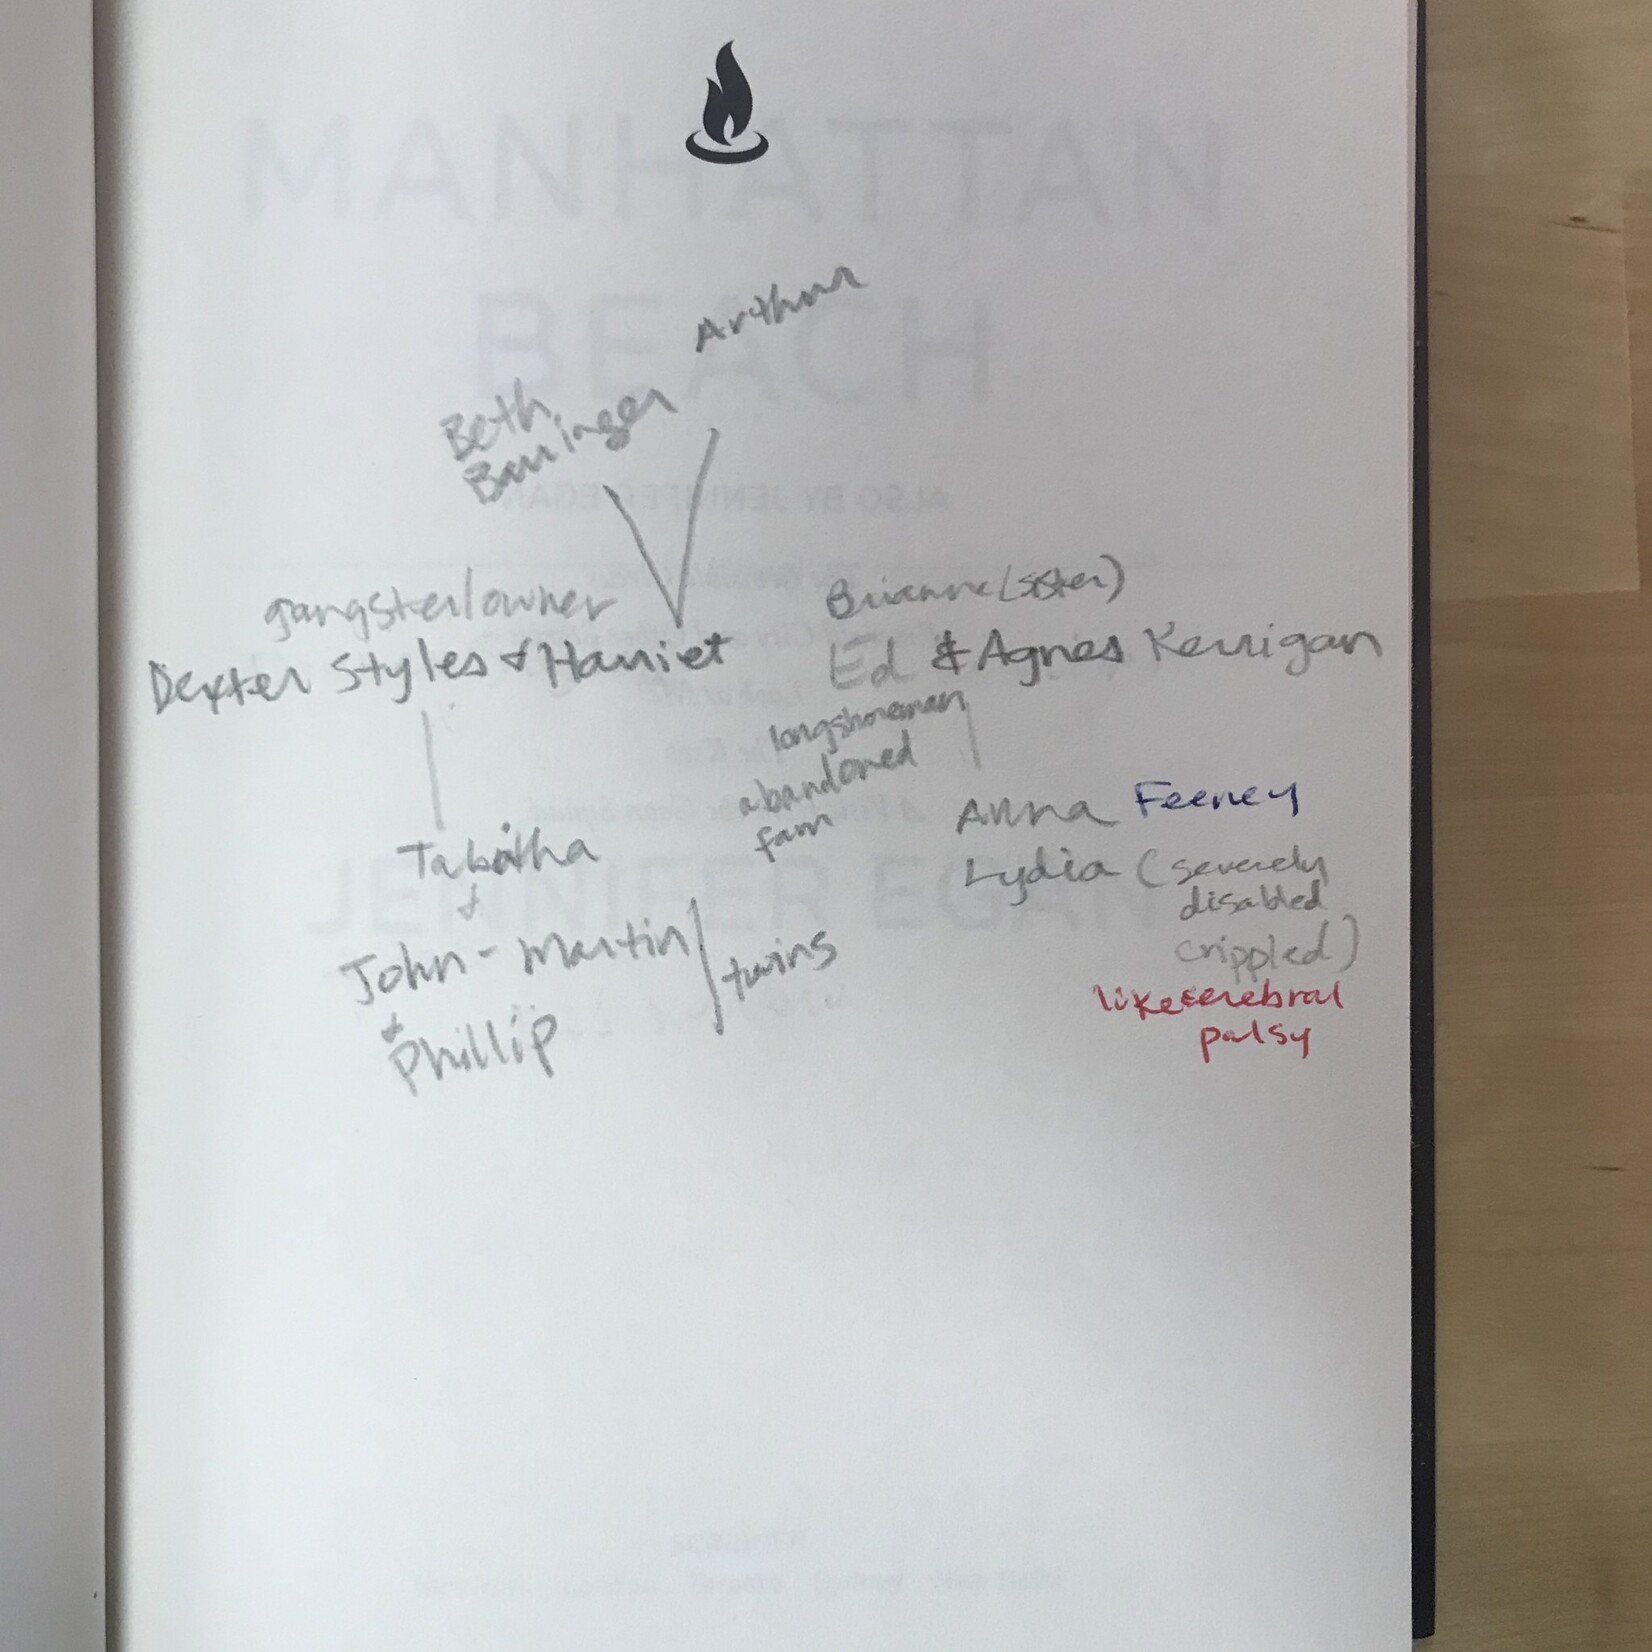 MANHATTAN
BEACH
Arthur
Beth
Barringer
ALSO BY JENNIFER EGAN
gangster/owner
Dexter Styles & Harriet
Brianne (sister)
Ed & Agnes Kerrigan
longshoreman
abandoned
fam
Anna Feeney
Lydia (severely
disabled
crippled)
like cerebral
palsy
Tabatha
&
John-Martin
&
Phillip
twins
JENNIFER EGAN
SCRIBNER